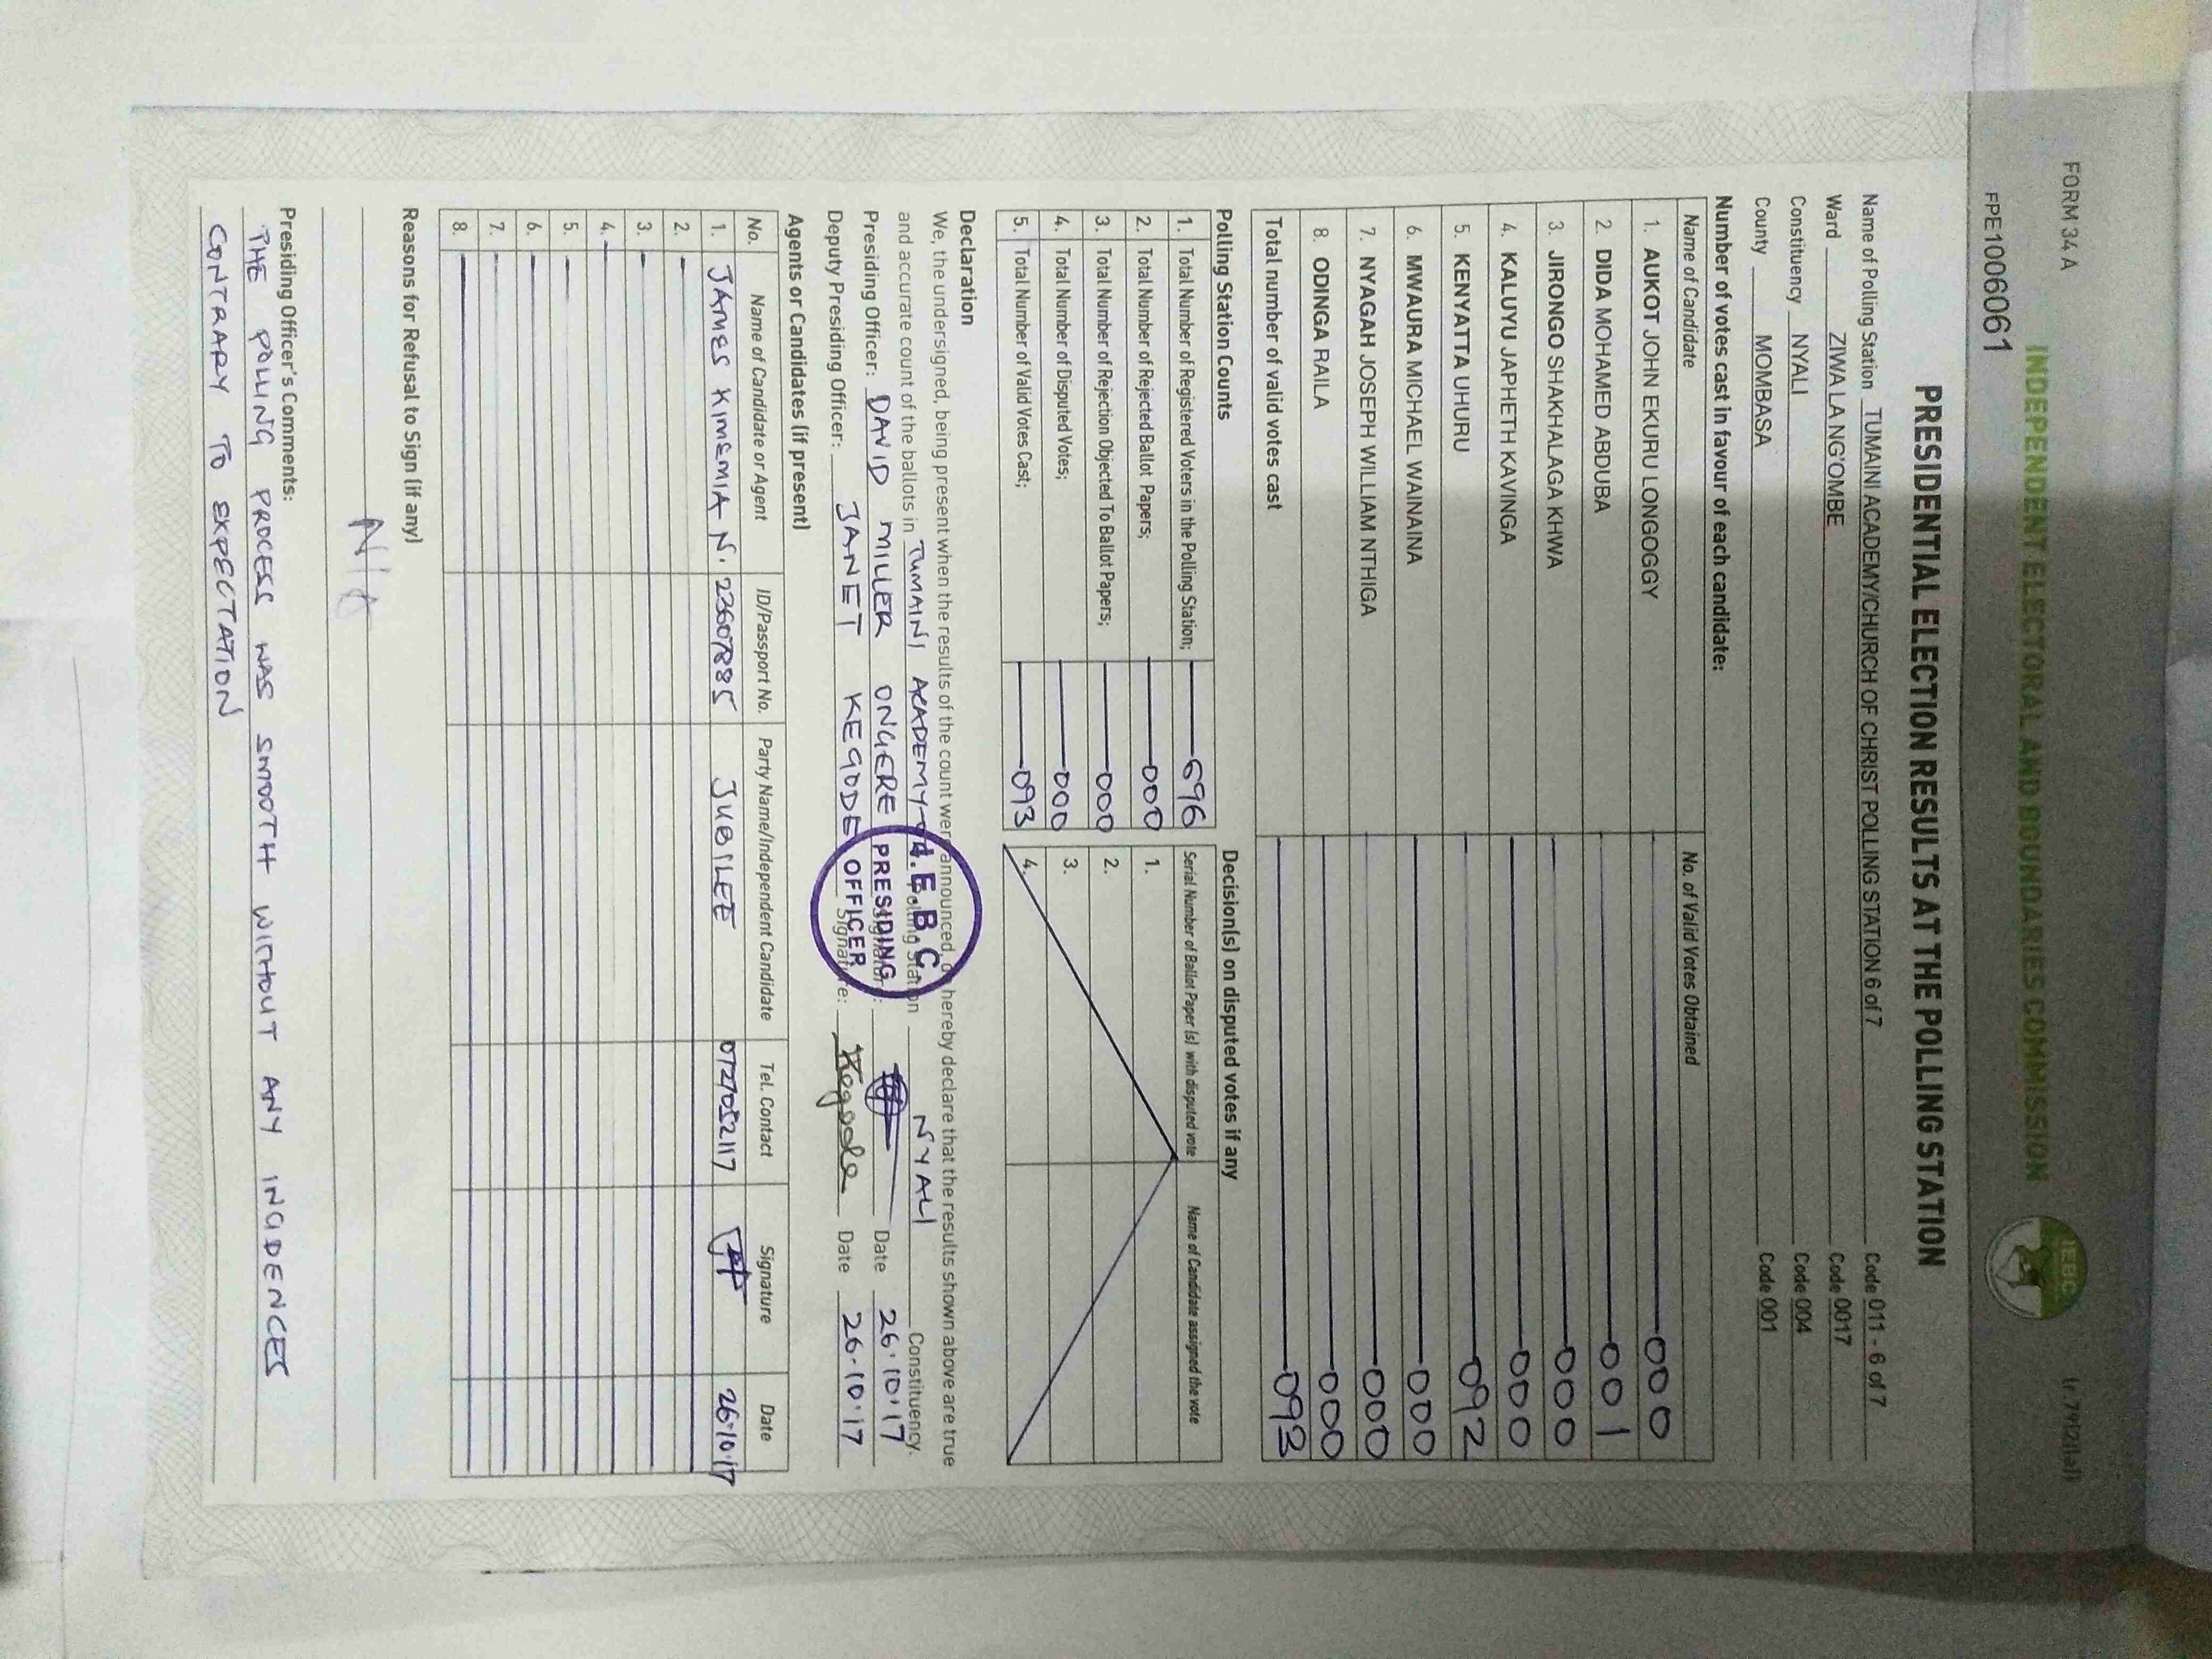 FORM 34 A
(r.79(2)(a))
INDEPENDENT ELECTORAL AND BOUNDARIES COMMISSION
IEBC
FPE1006061
PRESIDENTIAL ELECTION RESULTS AT THE POLLING STATION
Name of Polling Station TUMAINI ACADEMY/CHURCH OF CHRIST POLLING STATION 6 of 7 Code 011 - 6 of 7
Ward ZIWA LA NG'OMBE Code 0017
Constituency NYALI Code 004
County MOMBASA Code 001
Number of votes cast in favour of each candidate:
Name of Candidate No. of Valid Votes Obtained
1. AUKOT JOHN EKURU LONGOGGY 000
2. DIDA MOHAMED ABDUBA 001
3. JIRONGO SHAKHALAGA KHWA 000
4. KALUYU JAPHETH KAVINGA 000
5. KENYATTA UHURU 092
6. MWAURA MICHAEL WAINAINA 000
7. NYAGAH JOSEPH WILLIAM NTHIGA 000
8. ODINGA RAILA 000
Total number of valid votes cast 093
Polling Station Counts
1. Total Number of Registered Voters in the Polling Station; 696
2. Total Number of Rejected Ballot Papers; 000
3. Total Number of Rejection Objected To Ballot Papers; 000
4. Total Number of Disputed Votes; 000
5. Total Number of Valid Votes Cast; 093
Decision(s) on disputed votes if any
Serial Number of Ballot Paper (s) with disputed vote Name of Candidate assigned the vote
1.
2.
3.
4.
Declaration
We, the undersigned, being present when the results of the count were announced, do hereby declare that the results shown above are true
and accurate count of the ballots in TUMAINI ACADEMY Polling Station NYALI Constituency.
Presiding Officer: DAVID MILLER ONGERE Signature: Date 26.10.17
Deputy Presiding Officer: JANET KEGODE Signature: Kegode Date 26.10.17
I.E.B.C
PRESIDING
OFFICER
Agents or Candidates (if present)
No. Name of Candidate or Agent ID/Passport No. Party Name/Independent Candidate Tel. Contact Signature Date
1. JAMES KIMEMIA N. 23607885 JUBILEE 0727052117 26.10.17
2.
3.
4.
5.
6.
7.
8.
Reasons for Refusal to Sign (if any)
N/A
Presiding Officer's Comments:
THE POLLING PROCESS WAS SMOOTH WITHOUT ANY INCIDENCES
CONTRARY TO EXPECTATION